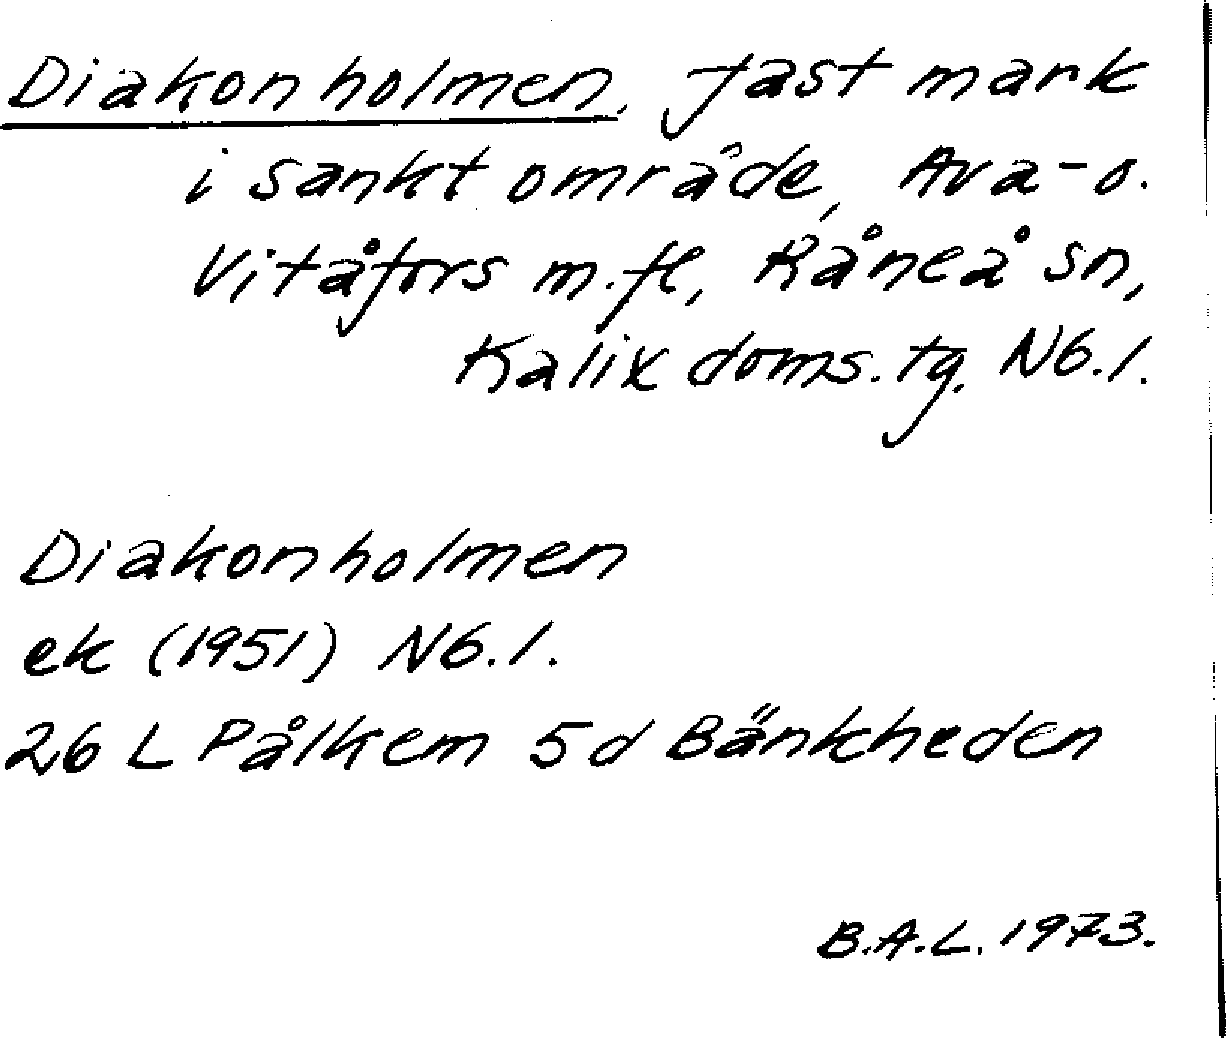 Diakonholmen, fast mark
i sankt område, Ava- o.
Vitåfors m.fl., Råneå sn,
Kalix doms. tg. Nb.l.
Diakonholmen
ek (1951) Nb.l.
26 L Pålkem 5d Bänkheden
B.A.L. 1973.